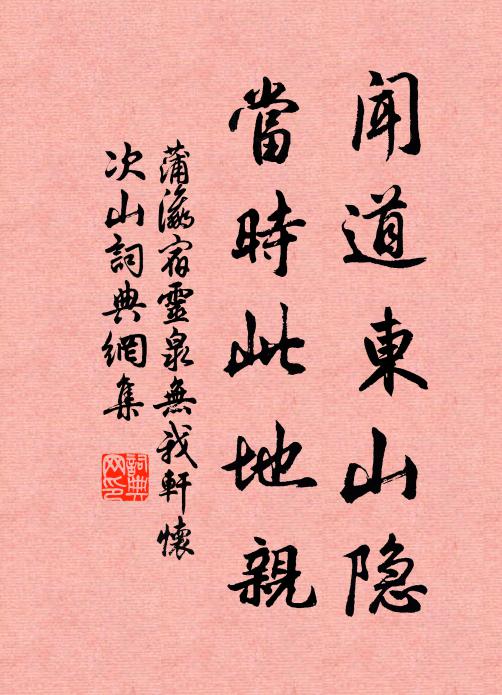 闻道東山隐
當時此地親
蒲瀛宿靈泉無我軒懷
次山詞典網集
詞典网印